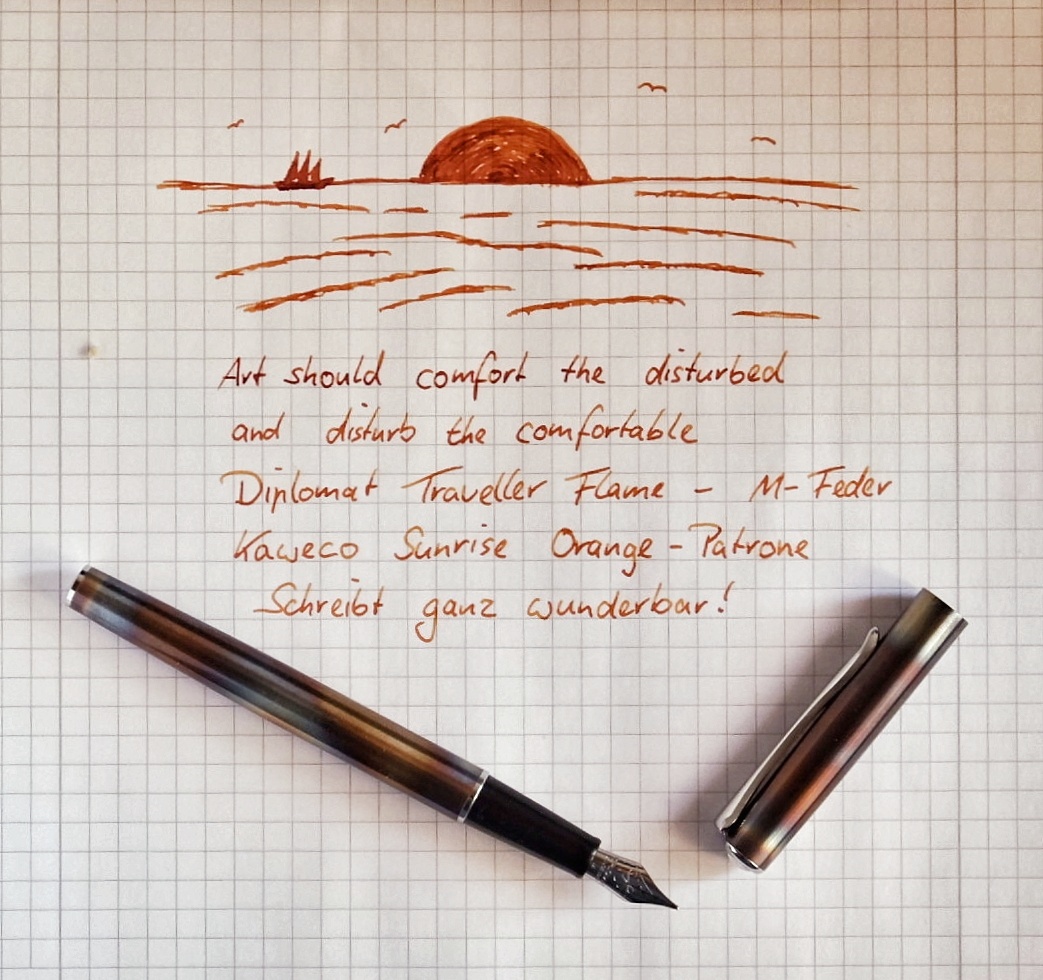 Art should comfort the disturbed
and disturb the comfortable
Diplomat Traveller Flame - M-Feder
Kaweco Sunrise Orange-Patrone
Schreibt ganz wunderbar!